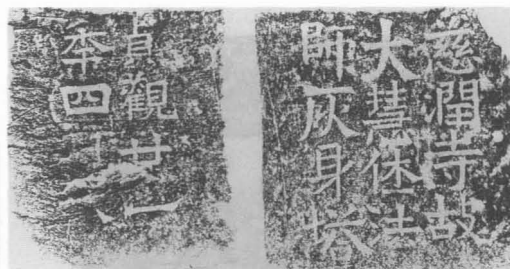 慈潤寺故
大慧休法
師灰身塔
貞觀廿一
年四